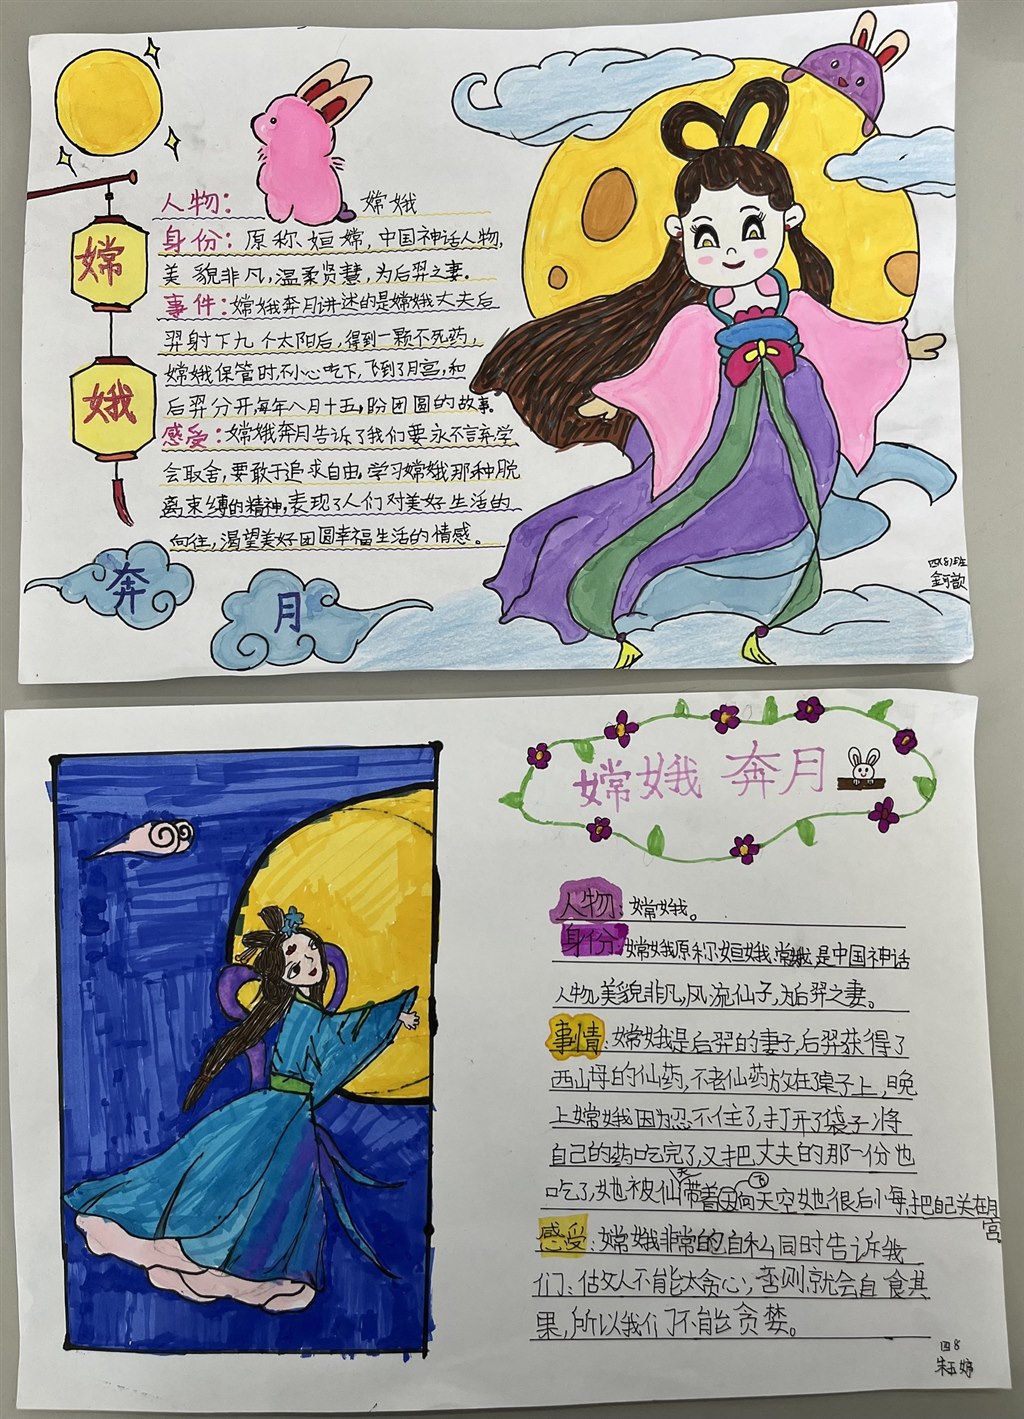 嫦
娥
奔
月
人物： 嫦娥
身份：原称、姮嫦，中国神话人物，
美貌非凡，温柔贤慧，为后羿之妻。
事件：嫦娥奔月讲述的是嫦娥丈夫后
羿射下九个太阳后，得到一颗不死药，
嫦娥保管时，不小心吃下，飞到了月宫，和
后羿分开，每年八月十五，盼团圆的故事。
感受：嫦娥奔月告诉了我们要永不言弃，学
会取舍，要敢于追求自由，学习嫦娥那种脱
离束缚的精神，表现了人们对美好生活的
向往，渴望美好团圆幸福生活的情感。
四(8)班
嫦娥奔月
人物：嫦娥。
身份：嫦娥原称姮娥、常娥，是中国神话
人物，美貌非凡，风流仙子，为后羿之妻。
事情：嫦娥是后羿的妻子，后羿获得了
西山母的仙药，不老仙药放在了桌子上，晚
上嫦娥因为忍不住了，打开了袋子将
自己的药吃完了，又把丈夫的那一份也
吃了，她被仙药带着飞向天空她也很后悔，把自己关在月
宫。
感受：嫦娥非常的自私同时告诉我
们：做人不能太贪心，否则就会自食其
果，所以我们不能贪婪。
四8
朱玉婷